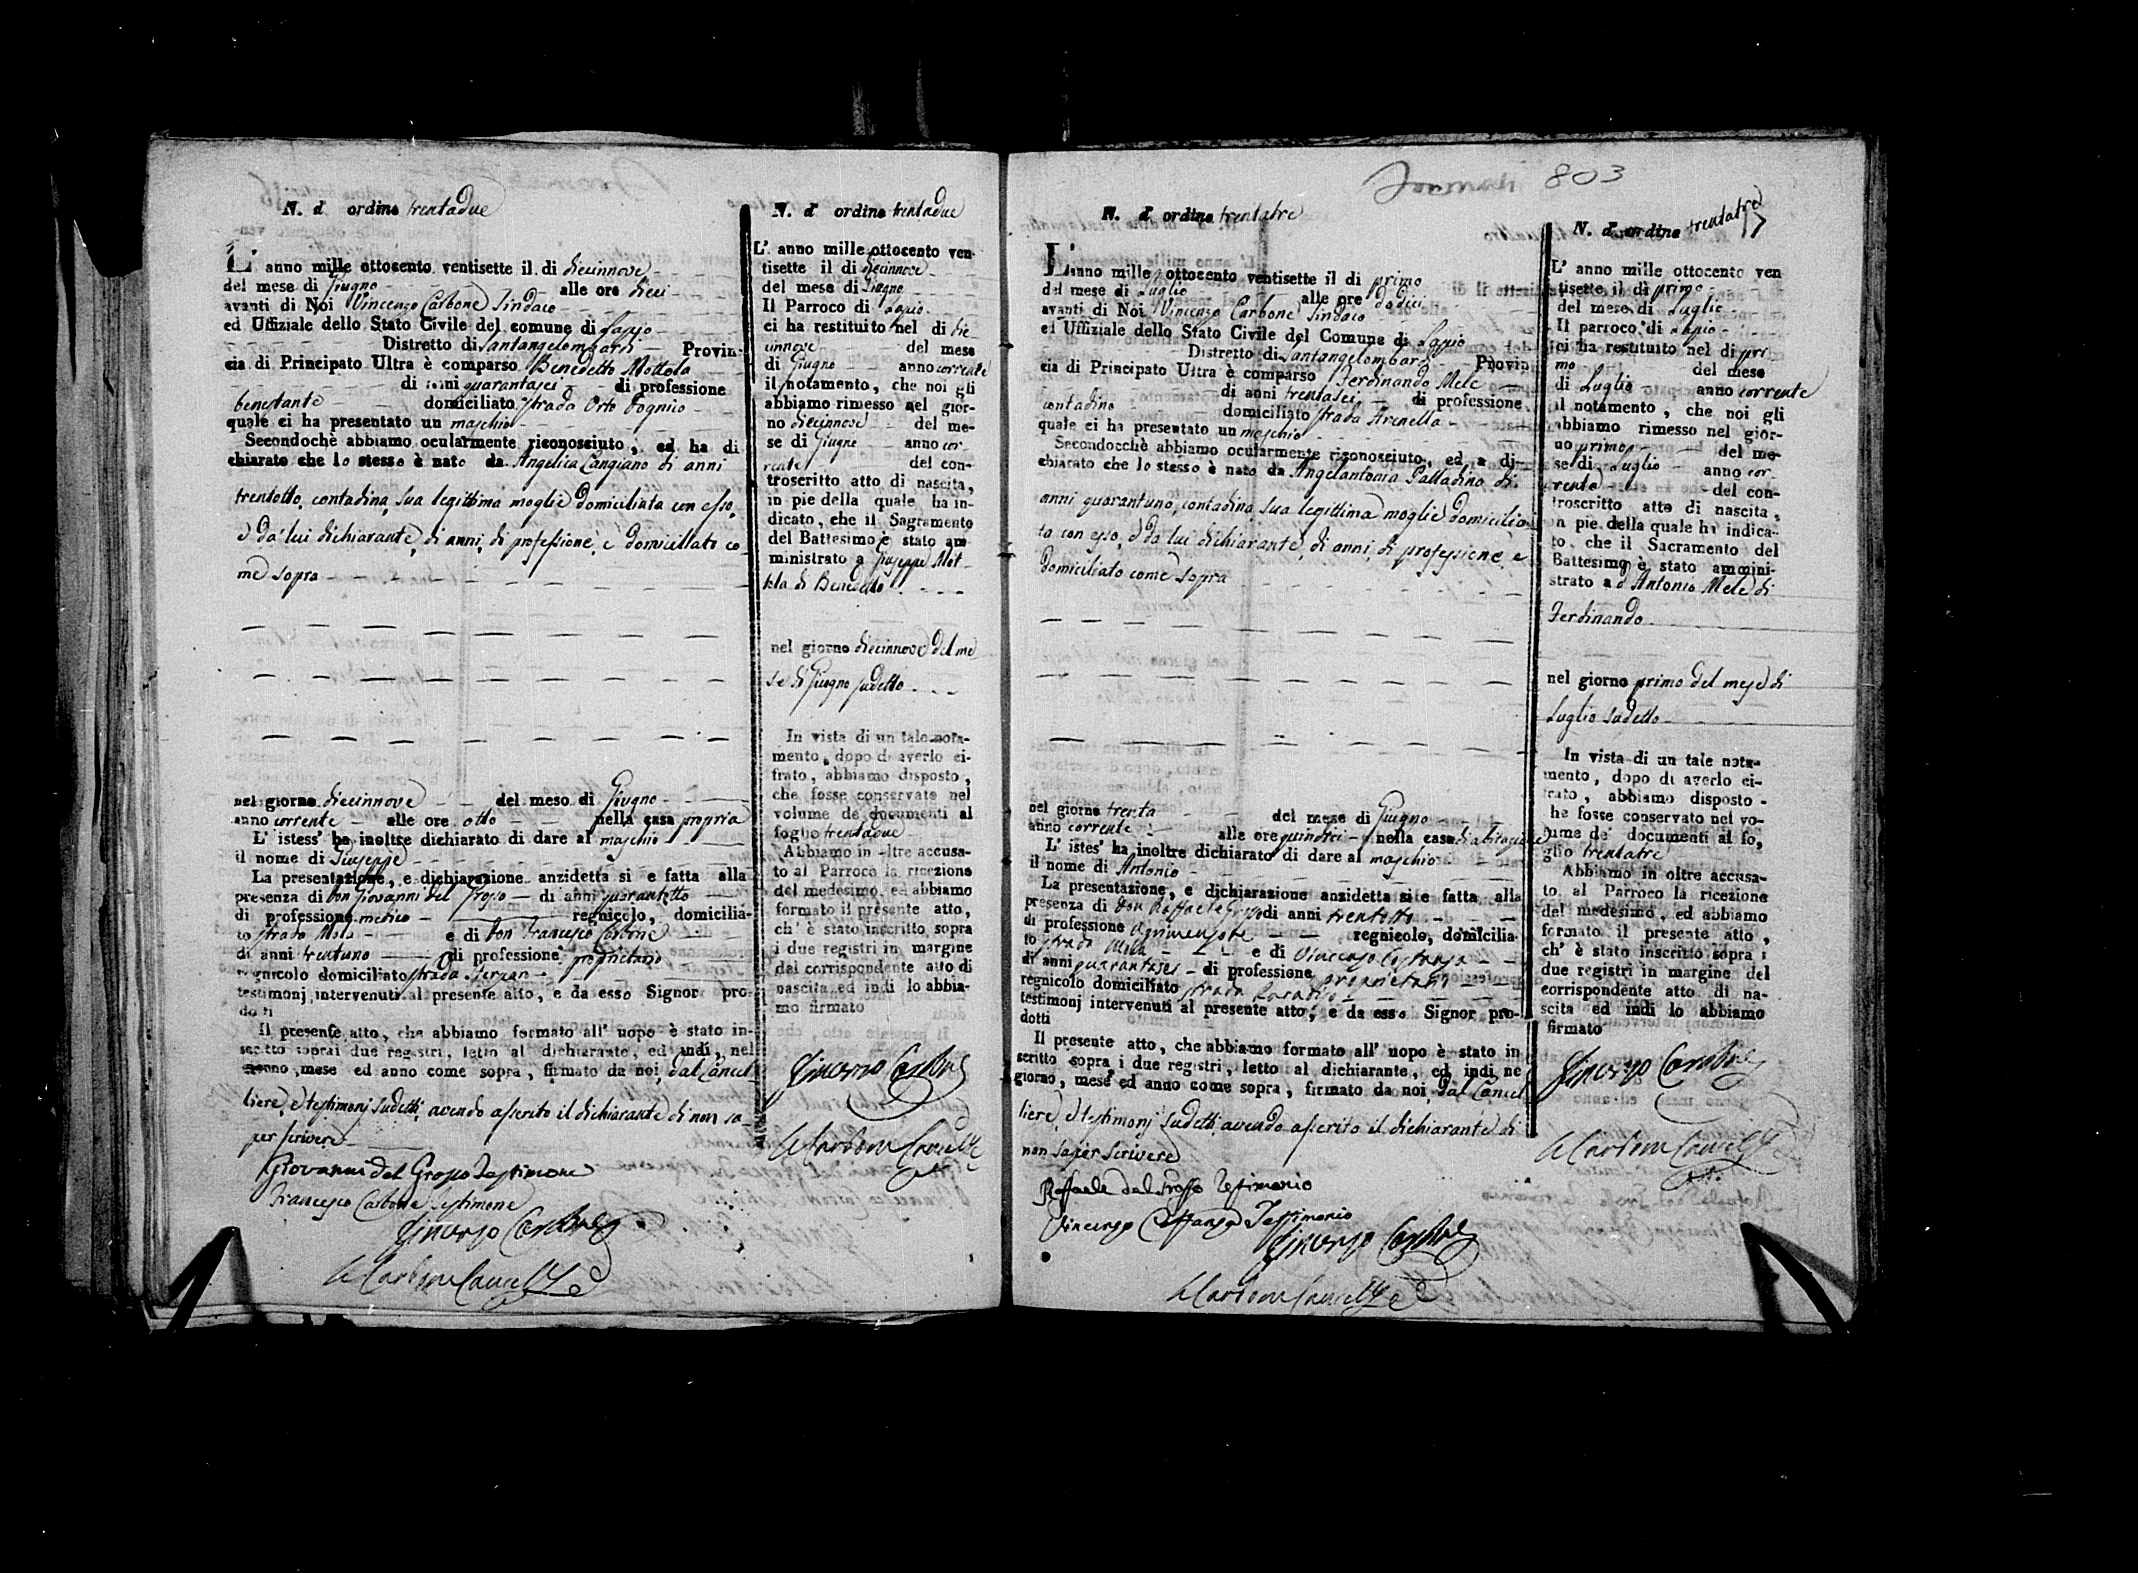 N. d' ordine trentadue
L' anno mille ottocento ventisette il di diecinnove
del mese di Giugno alle ore dieci
avanti di Noi Vincenzo Carbone Sindaco
ed Uffiziale dello Stato Civile del comune di Lapio
Distretto di Santangelombardi Provin-
cia di Principato Ultra è comparso Benedetto Mottola
di anni quarantasei di professione
benestante domiciliato strada Orto
quale ci ha presentato un maschio
Secondochè abbiamo ocularmente riconosciuto, ed ha di
chiarato che lo stesso è nato da Angelica Cangiano di anni
trentotto, contadina, sua legittima moglie domiciliata con esso,
e da lui dichiarante, di anni, di professione, e domiciliato co-
me sopra
nel giorno diecinnove del mese di Giugno
anno corrente alle ore otto nella casa propria
L' istess' ha inoltre dichiarato di dare al maschio
il nome di Giuseppe
La presentazione, e dichiarazione anzidetta si e fatta alla
presenza di Don Giovanni del Grosso di anni quarantotto
di professione medico regnicolo, domicilia-
to strada Mola e di Don Francesco Carbone
di anni trentuno di professione proprietario
regnicolo domiciliato strada
testimonj intervenuti al presente atto, e da esso Signor pro-
dotti
Il presente atto, che abbiamo formato all' uopo è stato in-
scritto sopra i due registri, letto al dichiarante, ed indi, nel
giorno, mese ed anno come sopra, firmato da noi, dal Cancel-
liere, e testimonj sudetti, avendo asserito il dichiarante di non sa-
per scrivere
Giovanni del Grosso Testimone
Francesco Carbone Testimone
Vincenzo Carbone
Carbone Cancell.e
N. d' ordine trentadue
L' anno mille ottocento ven-
tisette il di diecinnove
del mese di Giugno
Il Parroco di Lapio
ci ha restituito nel di die
cinnove del mese
di Giugno anno corrente
il notamento, che noi gli
abbiamo rimesso nel gior-
no diecinnove del me-
se di Giugno anno cor-
rente del con-
troscritto atto di nascita,
in pie della quale ha in-
dicato, che il Sagramento
del Battesimo è stato am
ministrato a Giuseppe Mot-
tola di Benedetto
nel giorno diecinnove del me
se di Giugno sudetto
In vista di un tale nota-
mento, dopo di averlo ci-
frato, abbiamo disposto,
che fosse conservato nel
volume de' documenti al
foglio trentadue
Abbiamo in oltre accusa-
to al Parroco la ricezione
del medesimo, ed abbiamo
formato il presente atto,
ch' è stato inscritto sopra
i due registri in margine
dal corrispondente atto di
nascita ed indi lo abbia-
mo firmato
Vincenzo Carbone
Carbone Cancell.e
803
N. d' ordine trentatre
L'anno mille ottocento ventisette il di primo
del mese di Luglio alle ore dodici
avanti di Noi Vincenzo Carbone Sindaco
ed Uffiziale dello Stato Civile del Comune di Lapio
Distretto di Santangelombardi Provin
cia di Principato Ultra è comparso Ferdinando Mele
di anni trentasei di professione
contadino domiciliato strada Arenella
quale ci ha presentato un maschio
Secondocchè abbiamo ocularmente riconosciuto, ed a di-
chiarato che lo stesso è nato da Angelantonia Palladino di
anni quarantuno, contadina, sua legittima moglie domicilia-
ta con esso, e da lui dichiarante, di anni, di professione, e
domiciliato come sopra
nel giorno trenta del mese di Giugno
anno corrente alle ore quindici nella casa di abitazione
L' istes' ha inoltre dichiarato di dare al maschio
il nome di Antonio
La presentazione, e dichiarazione anzidetta si e fatta alla
presenza di Don Raffaele Grosso di anni trentotto
di professione agrimensore regnicolo, domicilia-
to strada Mola e di Vincenzo Costanza
di anni quarantasei di professione proprietario
regnicolo domiciliato strada
testimonj intervenuti al presente atto, e da esso Signor pro-
dotti
Il presente atto, che abbiamo formato all' uopo è stato in
scritto sopra i due registri, letto al dichiarante, ed indi ne
giorno, mese ed anno come sopra, firmato da noi, dal Cancel
liere, e testimonj sudetti, avendo asserito il dichiarante di
non saper scrivere
Raffaele del Grosso Testimonio
Vincenzo Costanza Testimonio
Vincenzo Carbone
Carbone Cancell.e
N. d' ordine trentatre
L' anno mille ottocento ven
tisette il di primo
del mese di Luglio
Il parroco di Lapio
ci ha restituito nel di pri
mo del mese
di Luglio anno corrente
il notamento, che noi gli
abbiamo rimesso nel gior-
no primo del me-
se di Luglio anno cor
rente del con-
troscritto atto di nascita,
in pie della quale ha indica-
to, che il Sacramento del
Battesimo è stato ammini-
strato ad Antonio Mele di
Ferdinando
nel giorno primo del mese di
Luglio sudetto
In vista di un tale nota-
mento, dopo di averlo ci-
frato, abbiamo disposto -
he fosse conservato nel vo-
lume de' documenti al fo,
glio trentatre
Abbiamo in oltre accusa-
to al Parroco la ricezione
del medesimo, ed abbiamo
formato il presente atto,
ch' è stato inscritto sopra i
due registri in margine del
corrispondente atto di na-
scita ed indi lo abbiamo
firmato
Vincenzo Carbone
Carbone Cancell.e